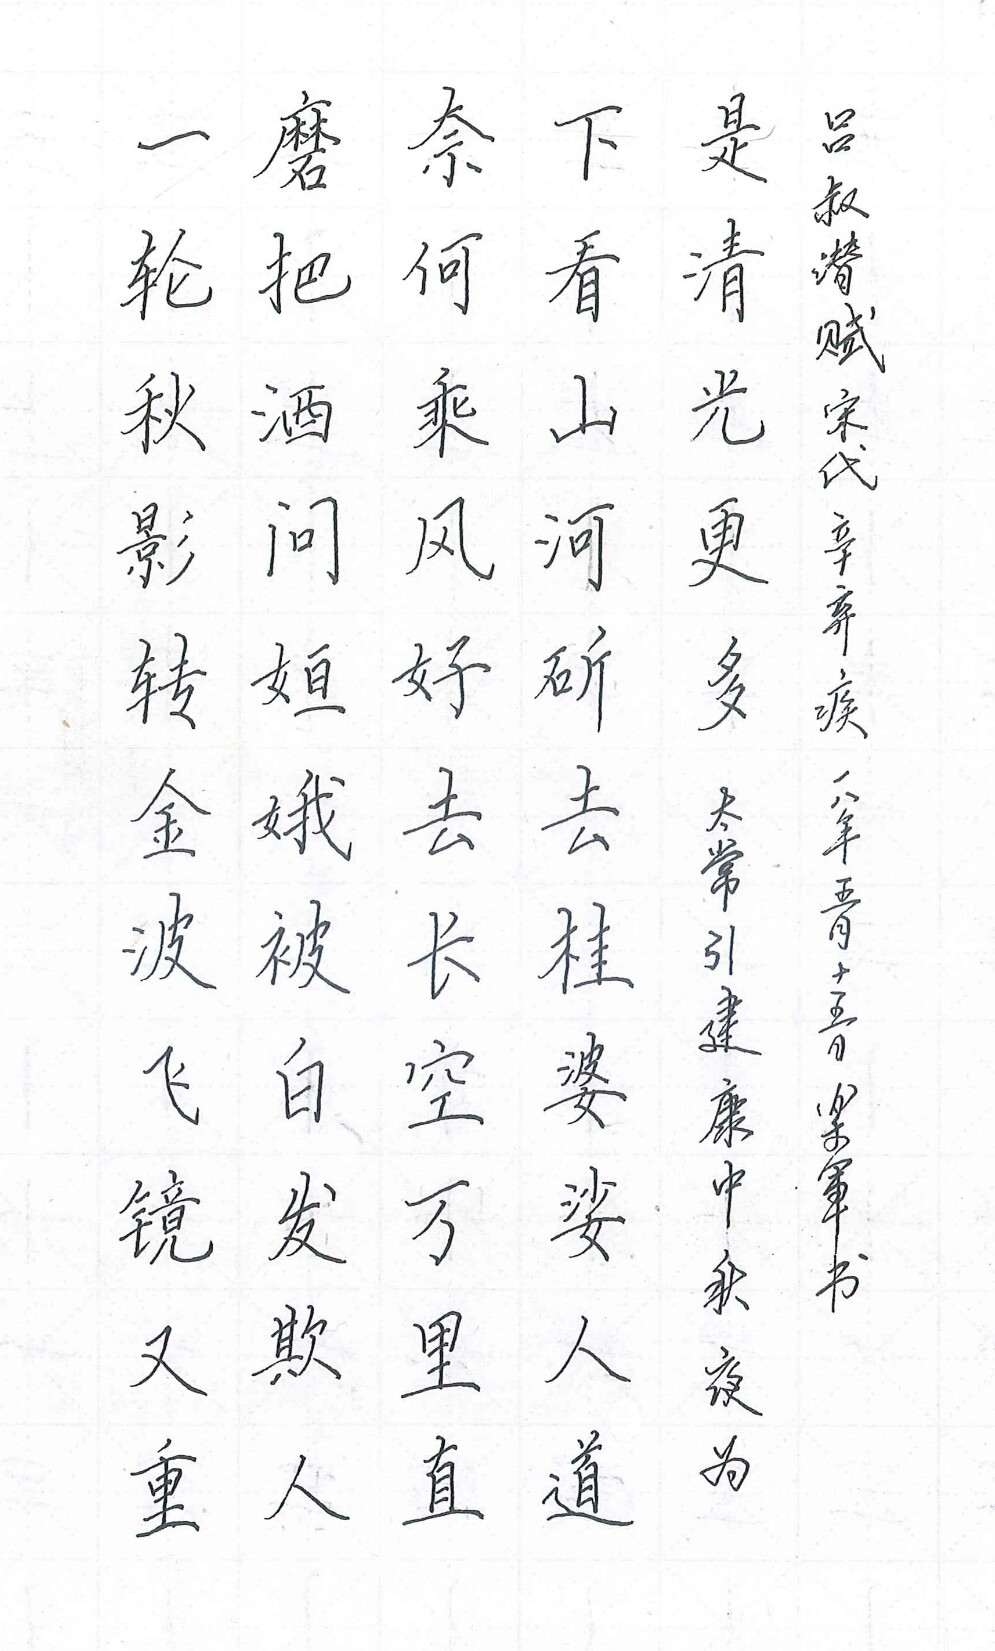 一轮秋影转金波飞镜又重
磨把酒问姮娥被白发欺人
奈何乘风好去长空万里直
下看山河斫去桂婆娑人道
是清光更多 太常引建康中秋夜为
吕叔潜赋 宋代 辛弃疾 一八年五月十五日 軍书